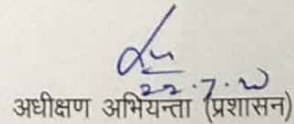 22.7.20
अधीक्षण अभियन्ता (प्रशासन)